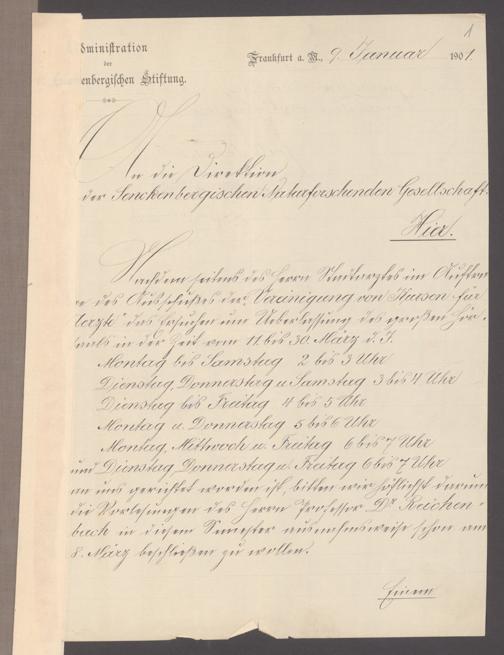 1
dministration
der
enbergischen Stiftung.
Frankfurt a. M., 9. Januar 1901.
An die Direktion
der Senckenbergischen Naturforschenden Gesellschaft.
Hier.
Nachdem seitens des Herrn Stadtarztes im Auftra
e des Ausschußes der „Vereinigung von Kursen für
Aerzte" das Ersuchen um Ueberlassung des großen Hör-
saals in der Zeit vom 11 bis 30. März d. J.
Montag bis Samstag 2 bis 3 Uhr
Dienstag, Donnerstag u. Samstag 3 bis 4 Uhr
Dienstag bis Freitag 4 bis 5 Uhr
Montag u. Donnerstag 5 bis 6 Uhr
Montag, Mittwoch u. Freitag 6 bis 7 Uhr
und Dienstag, Donnerstag u. Freitag 6 bis 7 Uhr
an uns gerichtet worden ist, bitten wir höflichst darum
die Vorlesungen des Herrn Professor Dr. Reichen-
bach in diesem Semester ausnahmsweise schon am
8. März beschließen zu wollen.
Einem